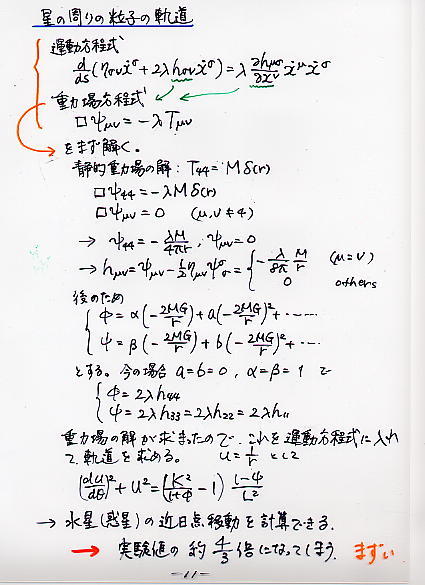 星の周りの粒子の軌道
運動方程式
d/ds(ησν ẋ^σ + 2λ hσν ẋ^σ) = λ ∂hμσ/∂x^ν ẋ^μ ẋ^σ
重力場方程式
□ψμν = -λ Tμν
をまず解く。
静的重力場の解: T44 = Mδ(r)
□ψ44 = -λMδ(r)
□ψμν = 0 (μ,ν ≠ 4)
→ ψ44 = -λM/4πr, ψμν = 0
→ hμν = ψμν - ½ημνψ^σσ = { -λ/8π M/r (μ=ν)
0 others
後のため
{ Φ = α(-2MG/r) + a(-2MG/r)² + ……
ψ = β(-2MG/r) + b(-2MG/r)² + …
とする。今の場合 a=b=0, α=β=1 で
{ Φ = 2λh44
ψ = 2λh33 = 2λh22 = 2λh11
重力場の解が求まったので、これを運動方程式に入れ
て、軌道を求める。 u = 1/r として
(du/dθ)² + u² = (K²/1+Φ - 1) 1-ψ/L²
→ 水星(惑星)の近日点移動を計算できる。
→ 実験値の約 4/3 倍になってしまう。まずい
-11-